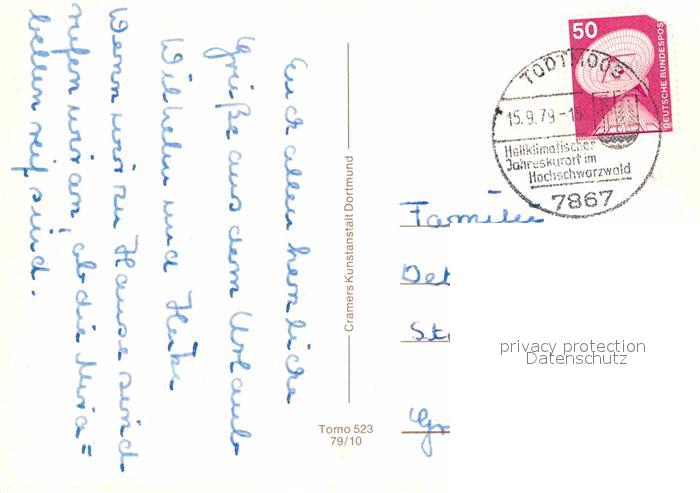 Euch allen herzliche
Grüße aus dem Urlaub
Wilhelm und Heike
Wenn wir zu Hause sind
rufen wir an, ob die Mira=
bellen reif sind.
Cramers Kunstanstalt Dortmund
Tomo 523
79/10
50
DEUTSCHE BUNDESPOST
TODTMOOS
15.9.79-15
Heilklimatischer
Jahreskurort im
Hochschwarzwald
7867
Familie
Det
St
Gr
privacy protection
Datenschutz